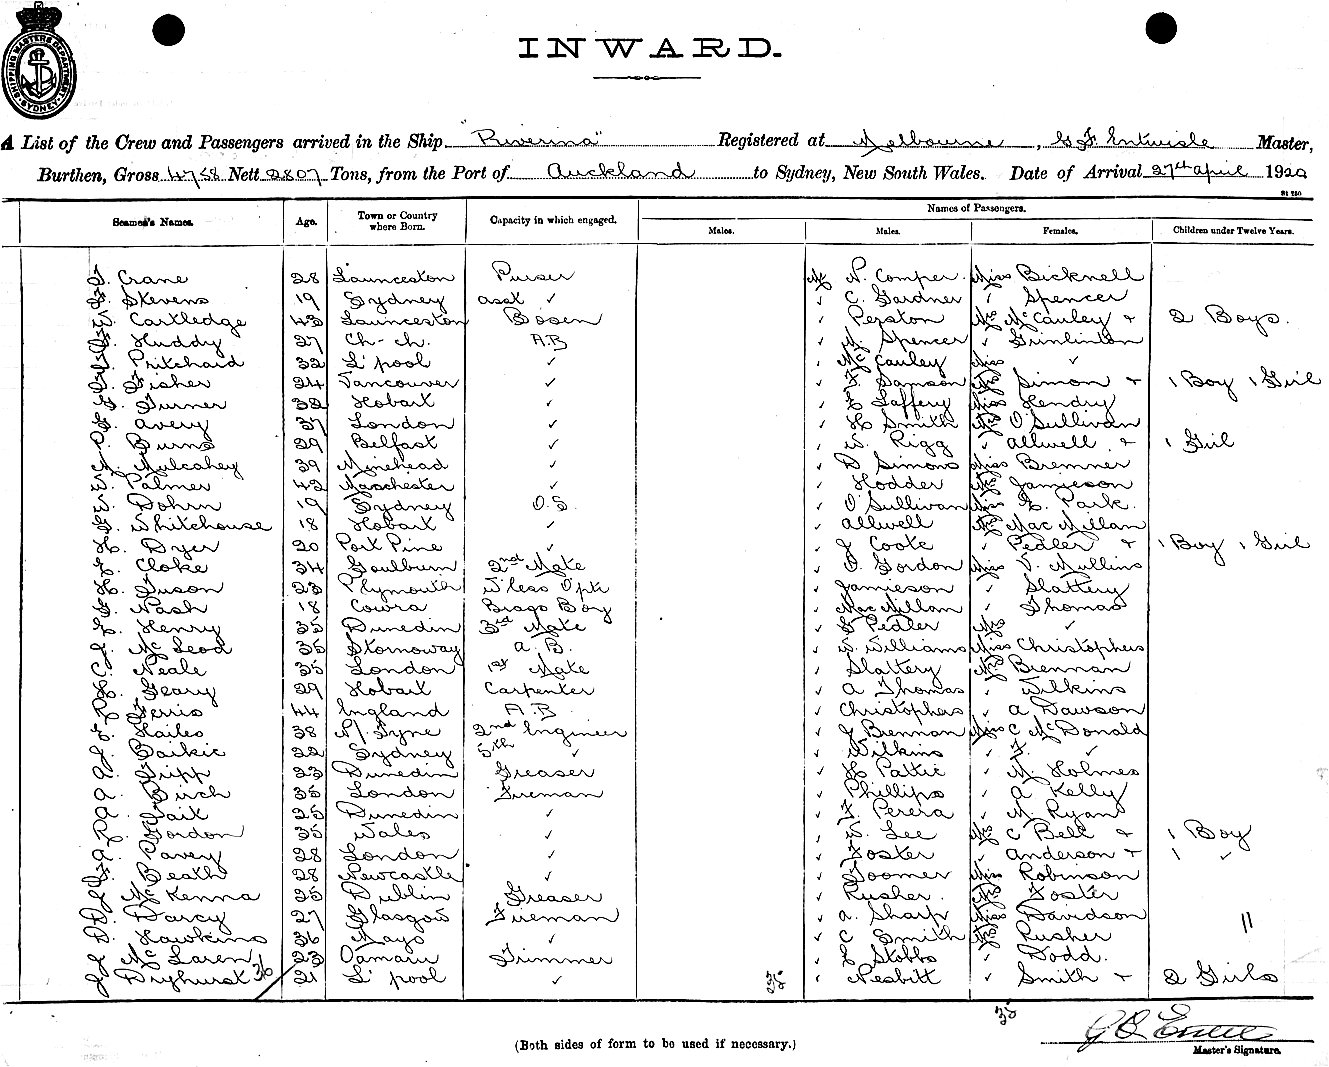 SHIPPING MASTERS DEPARTMENT SYDNEY
INWARD.
A List of the Crew and Passengers arrived in the Ship "Riverina" Registered at Melbourne, G F. Entwisle Master,
Burthen, Gross 4758 Nett 2807 Tons, from the Port of Auckland to Sydney, New South Wales. Date of Arrival 27th April 1920
Names of Passengers.
Seamen's Names. Age. Town or Country where Born. Capacity in which engaged. Males. Males. Females. Children under Twelve Years.
Crane 28 Launceston Purser Mr N. Comper Miss Bicknell
Stevens 19 Sydney asst ✓ C. Gardner Spencer
Cartledge 43 Launceston Bosen Perston Mrs McCauley + 2 Boys.
Huddy 27 Ch-ch. A.B Spencer Grinlinton
Pritchard 32 L'pool ✓ McCauley Miss ✓
Fisher 24 Vancouver ✓ Samson Mrs Simon + 1 Boy 1 Girl
Turner 32 Hobart ✓ Laffery Miss Hendry
Avery 37 London ✓ H Smith Mrs O'Sullivan
Burns 29 Belfast ✓ W. Rigg Allwell + 1 Girl
Mulcahey 39 Minehead ✓ D Simons Miss Bremner
Palmer 42 Manchester ✓ Hodder Mrs Jamieson
Dohrn 19 Sydney O.S. O'Sullivan Park.
Whitehouse 18 Hobart ✓ Allwell MacMillan
H. Dyer 20 Port Pirie ✓ J Coote Pedler + 1 Boy 1 Girl
Cloke 34 Goulburn 2nd Mate Gordon Miss V. Mullins
H. Tuson 23 Plymouth W'less Optr Jamieson Slattery
Nash 18 Cowra Bragg Boy MacMillan Thomas
Henry 35 Dunedin 3rd Mate Pedler Mrs ✓
J. McLeod 35 Stornoway A.B. W. Williams Miss Christophers
C. Neale 35 London 1st Mate Slattery Mrs Brennan
H. Geary 29 Hobart Carpenter A Thomas Wilkins
Ferris 44 England A.B Christophers A Dawson
Hailes 38 N/Tyne 2nd Engineer J Brennan Miss C McDonald
J. Baikie 22 Sydney 5th ✓ Wilkins F. ✓
Tripp 23 Dunedin Greaser H Pattie M Holmes
A. Birch 35 London Fireman Phillips A Kelly
A. Tait 25 Dunedin ✓ Perera M Ryan
R. Gordon 35 Wales ✓ W. Lee Mrs C Bell + 1 Boy
A. Pavey 28 London ✓ Foster Anderson + 1 ✓
Beath 28 Newcastle ✓ Toomer Miss Robinson
J. McKenna 25 Dublin Greaser Rusher. Mrs Foster
Darcy 27 Glasgow Fireman A. Sharp Miss Davidson 11
Hawkins 36 Mayo ✓ C Smith Mrs Rusher
J. McLaren 23 Oamaru Trimmer Stobbs Dodd.
J Dryhurst 36 21 L'pool ✓ Nesbitt Smith + 2 Girls
35
(Both sides of form to be used if necessary.)
Master's Signature.